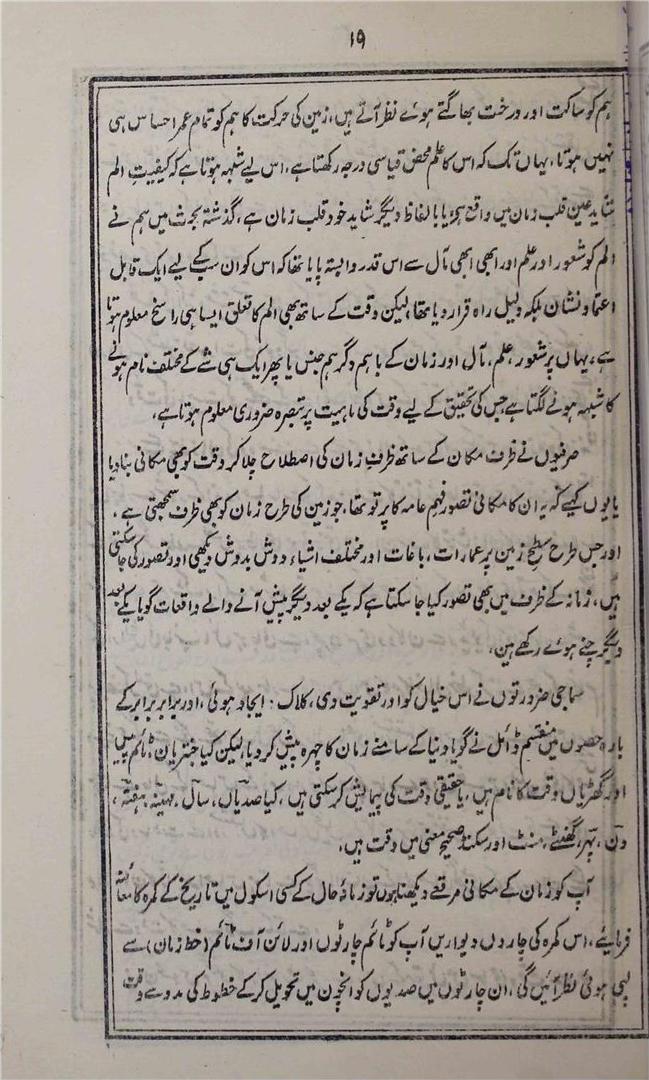 ۱۹
ہم کو ساکت اور درخت بھاگتے ہوئے نظر آتے ہیں، زمین کی حرکت کا ہم کو تمام عمر احساس ہی
نہیں ہوتا، یہاں تک کہ اس کا علم محض قیاسی درجہ رکھتا ہے، اس لیے شبہہ ہوتا ہے کہ کیفیتِ الم
شاید عین قلب زمان میں واقع ہو، یا بالفاظ دیگر شاید خود قلب زمان ہے، گذشتہ بحث میں ہم نے
الم کو شعور اور علم اور ابھی ابھی مآل سے اس قدر وابستہ پایا تھا کہ اس کو ان سب کے لیے ایک قابل
اعتماد نشان بلکہ دلیل راہ قرار دیا تھا، لیکن وقت کے ساتھ بھی الم کا تعلق ایسا ہی راسخ معلوم ہوتا
ہے، یہاں پر شعور، علم، مآل اور زمان کے باہم دگر ہم جنس یا پھر ایک ہی شے کے مختلف نام ہونے
کا شبہہ ہونے لگتا ہے جس کی تحقیق کے لیے وقت کی ماہیت پر تبصرہ ضروری معلوم ہوتا ہے،
صرفیوں نے ظرف مکان کے ساتھ ظرف زمان کی اصطلاح چلا کر وقت کو بھی مکانی بنا دیا
یا یوں کہیے کہ یہ ان کا مکانی تصور فہم عامہ کا پرتو تھا، جو زمین کی طرح زمان کو بھی ظرف سمجھتی ہے،
اور جس طرح سطح زمین پر عمارات، باغات اور مختلف اشیاء دوش بدوش دیکھی اور تصور کی جا سکتی
ہیں، زمانہ کے ظرف میں بھی تصور کیا جا سکتا ہے کہ یکے بعد دیگرے پیش آنے والے واقعات گویا یکے بعد
دیگرے چنے ہوئے رکھے ہیں،
سماجی ضرورتوں نے اس خیال کو اور تقویت دی، کلاک ایجاد ہوئی، اور برابر برابر کے
بارہ حصوں میں منقسم ڈائل نے گویا دنیا کے سامنے زمان کا چہرہ پیش کر دیا، لیکن کیا جنتریاں، ٹائم پیس
اور گھڑیاں وقت کا نام ہیں، یا حقیقی وقت کی پیمایش کر سکتی ہیں، کیا صدیاں، سال، مہینہ، ہفتہ،
دن، پہر، گھنٹے، منٹ اور سکنڈ صحیح معنی میں وقت ہیں،
آپ کو زمان کے مکانی مرقعے دیکھنا ہوں تو زمانۂ حال کے کسی اسکول میں تاریخ کے کمرہ کا معائنہ
فرمایئے، اس کمرہ کی چاروں دیواریں آپ کو ٹائم چارٹوں اور لائن آف ٹائم (خط زمان) سے
لپی ہوئی نظر آئیں گی، ان چارٹوں میں صدیوں کو انچوں میں تحویل کر کے خطوط کی مدد سے وقت